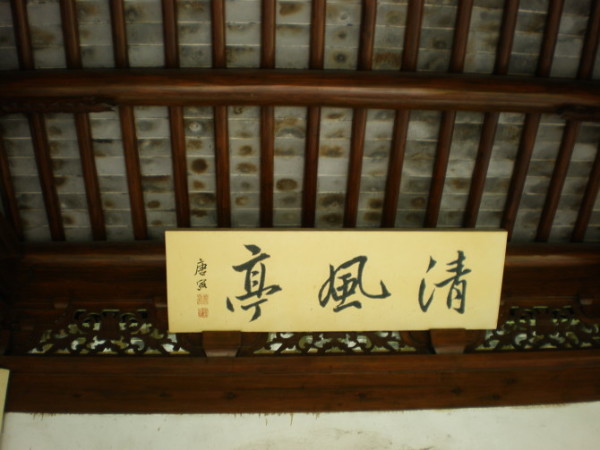 清風亭
唐寅